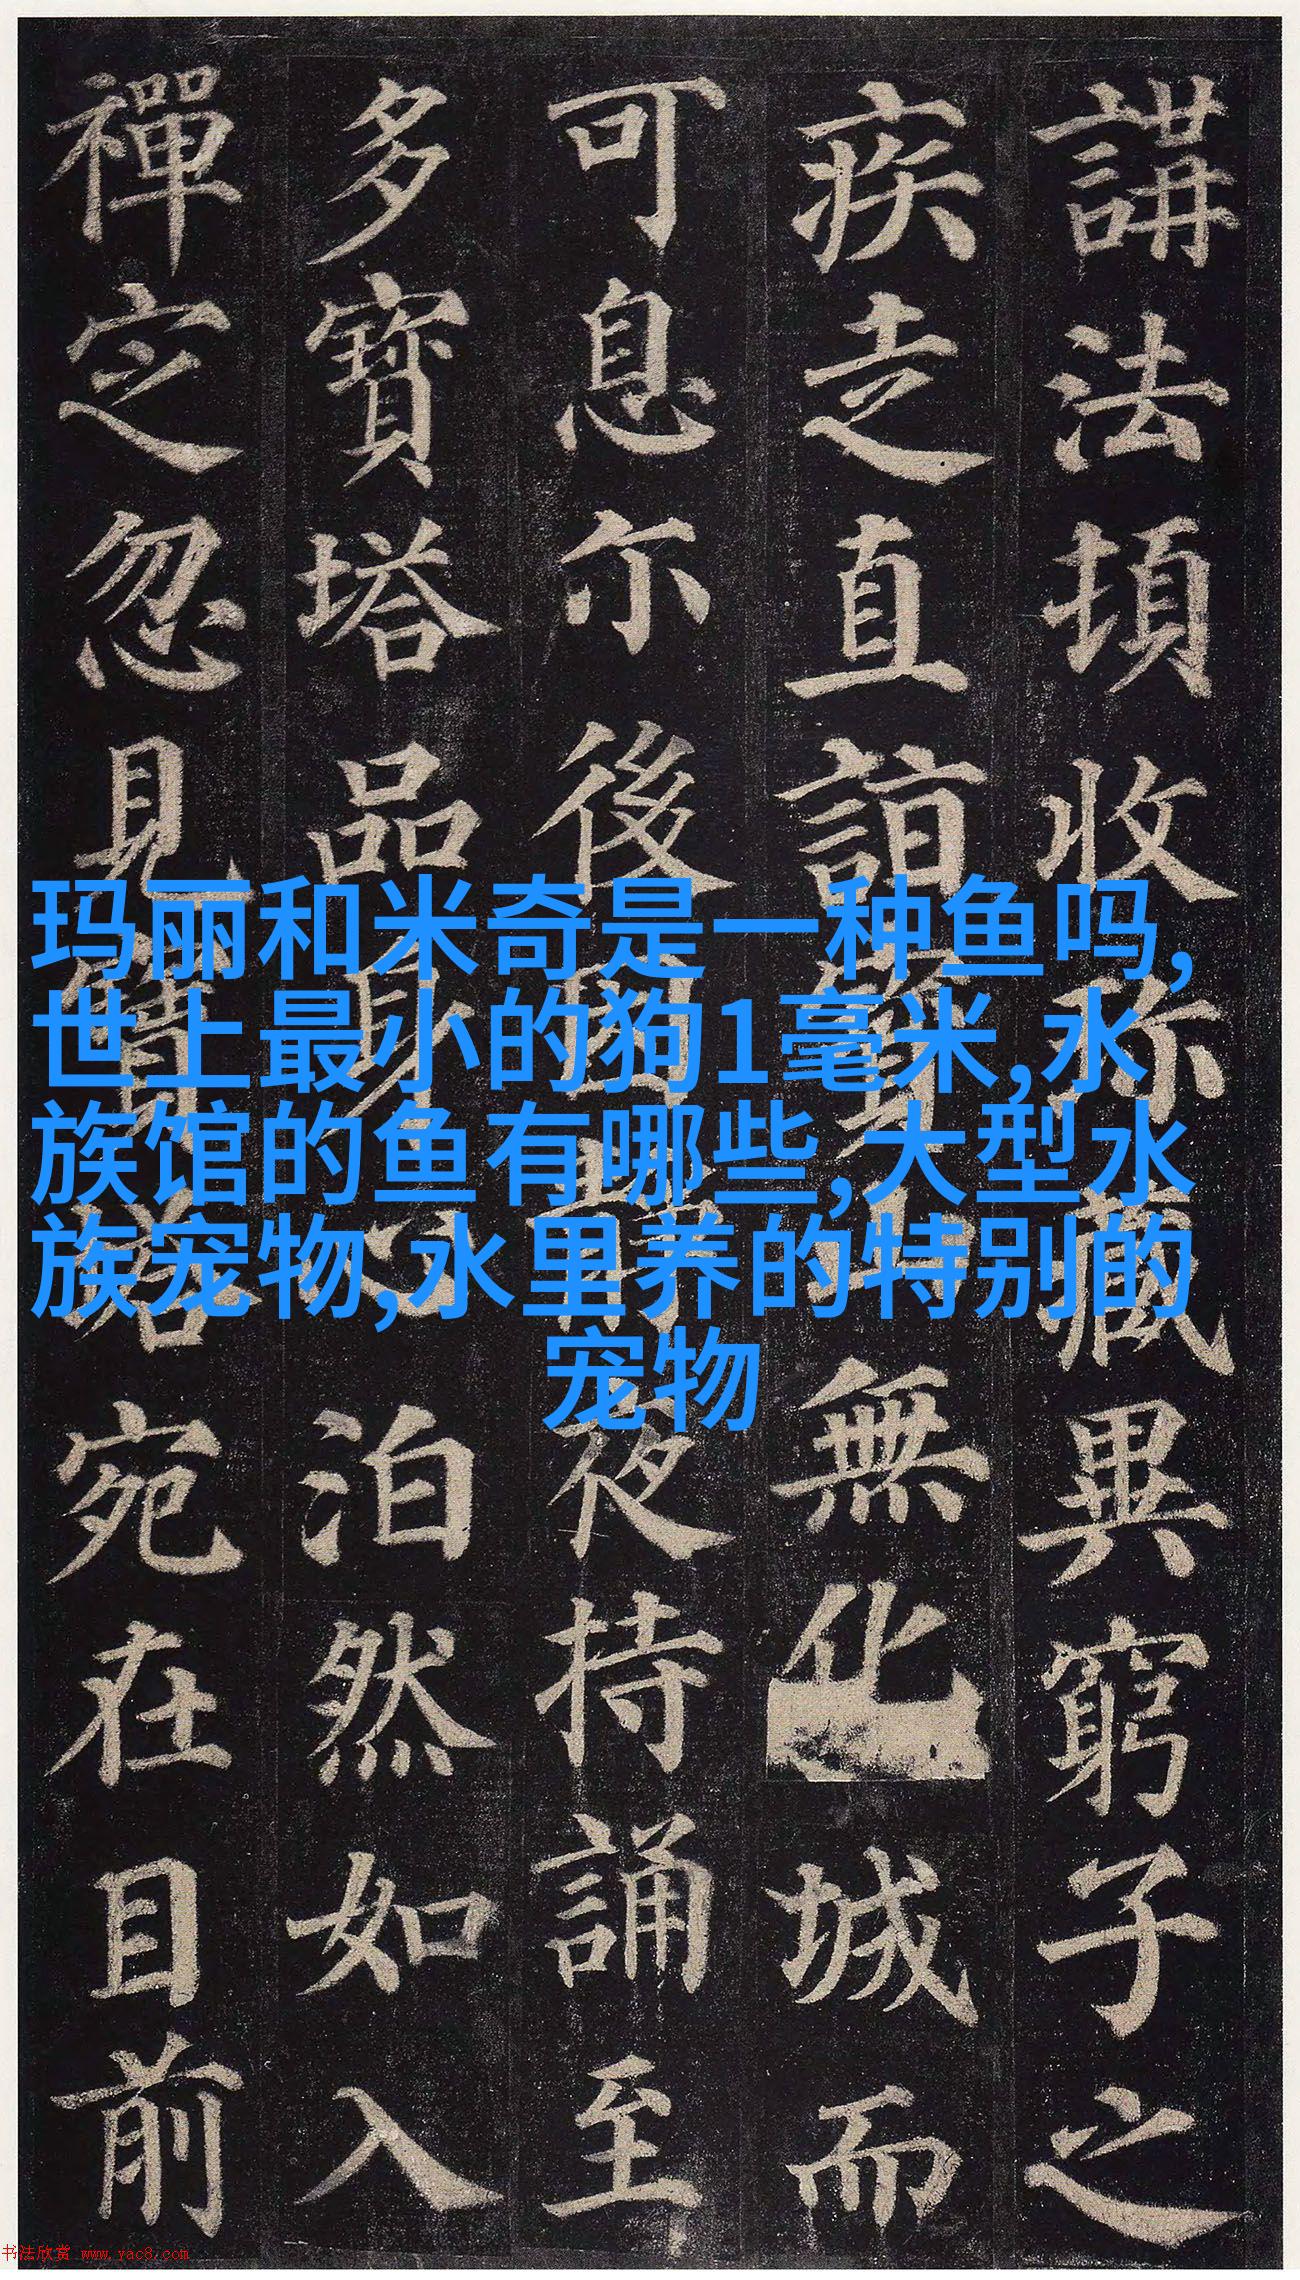 講法頓收珎藏異窮子之
疾走直詣寶山無化城而
可息尒後因靜夜持誦至
多寶塔品身心泊然如入
禪定忽見寶塔宛在目前
玛丽和米奇是一种鱼吗,
世上最小的狗1毫米,水
族馆的鱼有哪些,大型水
族宠物,水里养的特别的
宠物
书法欣赏 www.yac8.com